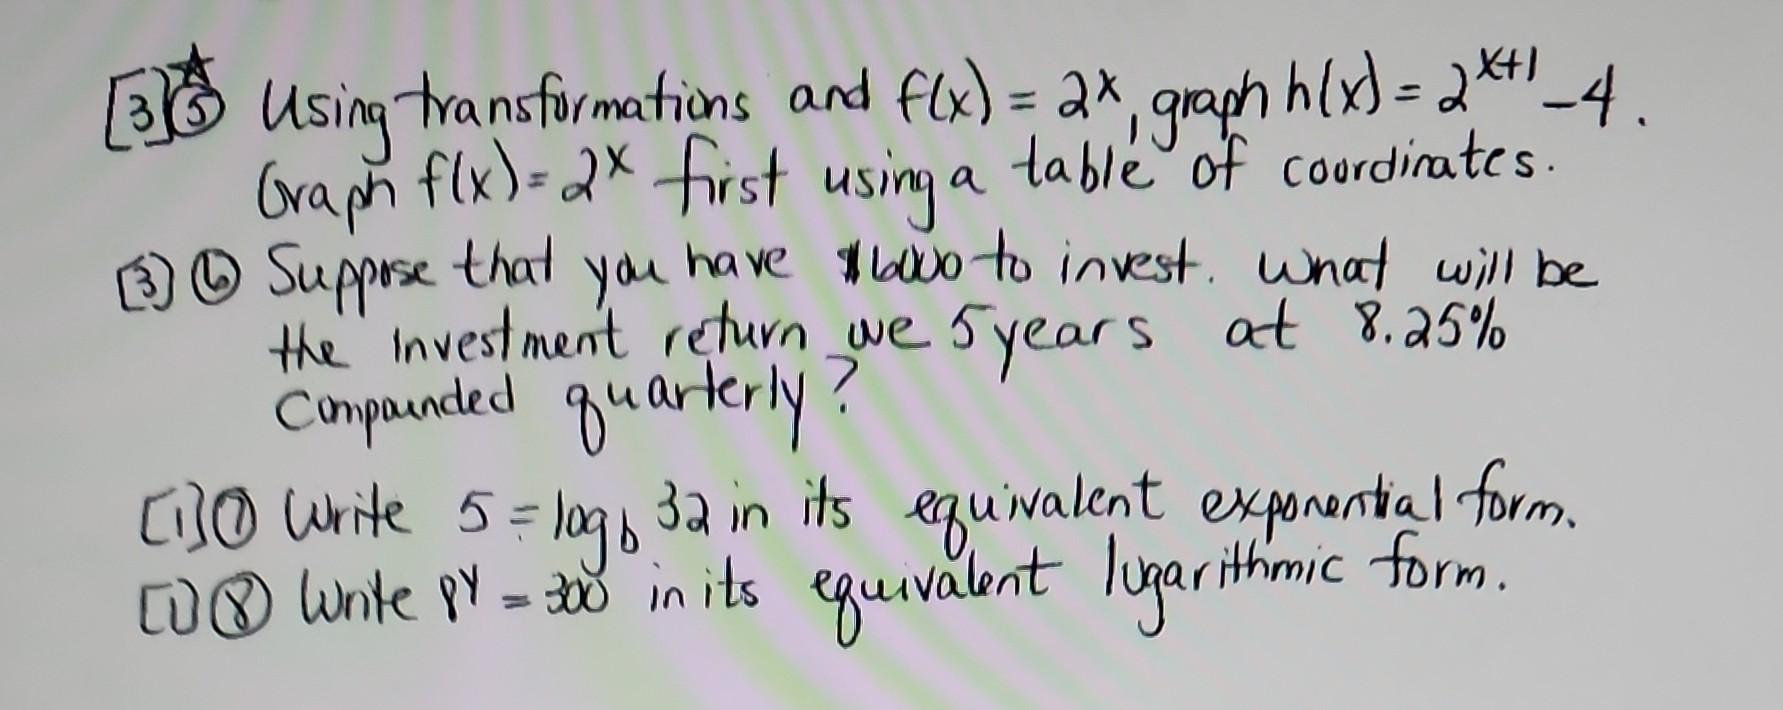 [3] ☆⑤ Using transformations and f(x) = 2ˣ, graph h(x) = 2ˣ⁺¹ - 4.
Graph f(x) = 2ˣ first using a table of coordinates.
[3] ⑥ Suppose that you have $6000 to invest. What will be
the investment return we 5 years at 8.25%
Compounded quarterly?
[1] ⑦ Write 5 = log_b 32 in its equivalent exponential form.
[1] ⑧ Write 8ʸ = 300 in its equivalent logarithmic form.